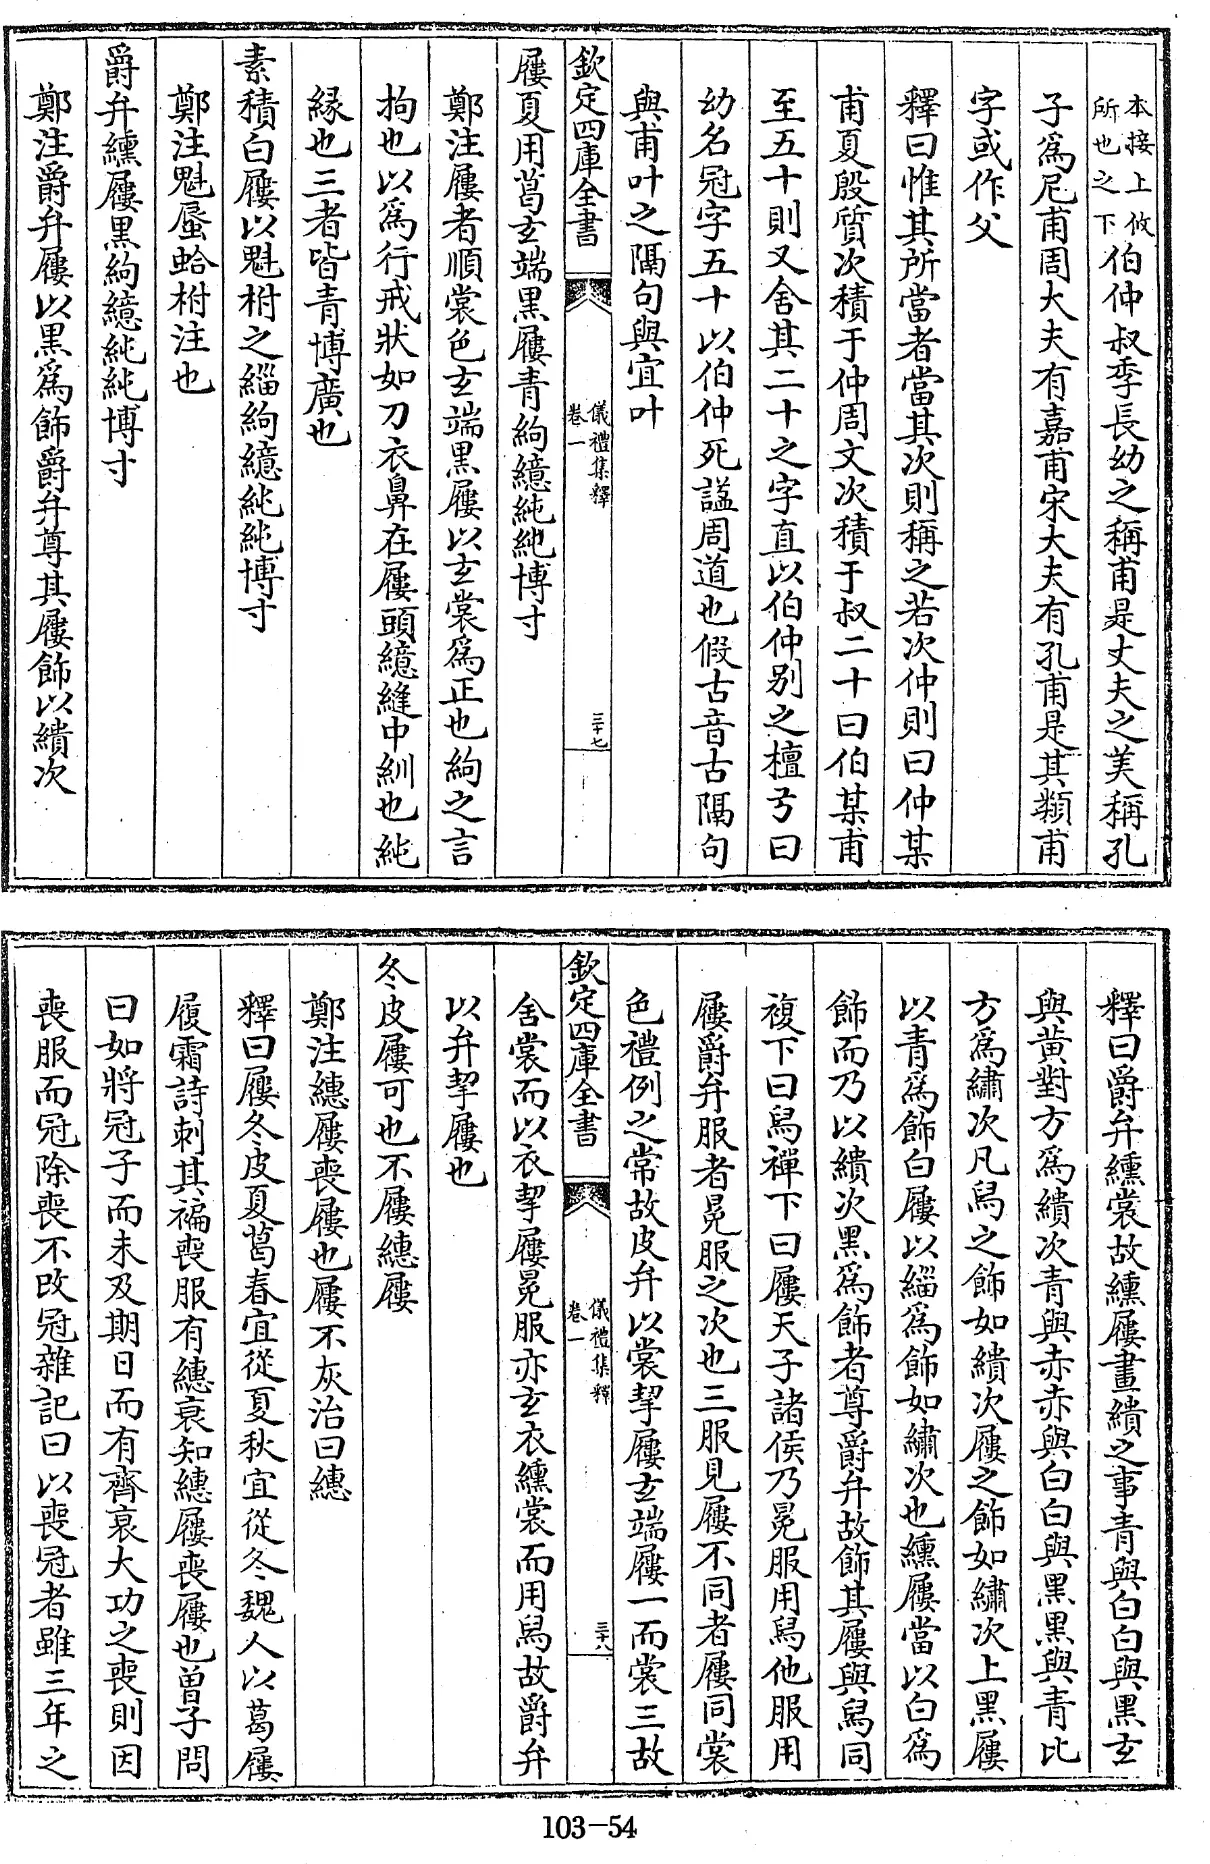 本接上攸所也之下伯仲叔季長幼之稱甫是丈夫之美稱孔
子爲尼甫周大夫有嘉甫宋大夫有孔甫是其類甫
字或作父
釋曰惟其所當者當其次則稱之若次仲則曰仲某
甫夏殷質次積于仲周文次積于叔二十曰伯某甫
至五十則又舍其二十之字直以伯仲别之檀弓曰
幼名冠字五十以伯仲死諡周道也假古音古隔句
與甫叶之隔句與宜叶
欽定四庫全書
儀禮集釋
卷一
三十七
屨夏用葛玄端黑屨青絇繶純純博寸
鄭注屨者順裳色玄端黑屨以玄裳爲正也絇之言
拘也以爲行戒狀如刀衣鼻在屨頭繶縫中紃也純
緣也三者皆青博廣也
素積白屨以魁柎之緇絇繶純純博寸
鄭注魁蜃蛤柎注也
爵弁纁屨黑絇繶純純博寸
鄭注爵弁屨以黑爲飾爵弁尊其屨飾以繢次
釋曰爵弁纁裳故纁屨畫繢之事青與白白與黑玄
與黃對方爲繢次青與赤赤與白白與黑黑與青比
方爲繡次凡舄之飾如繢次屨之飾如繡次上黑屨
以青爲飾白屨以緇爲飾如繡次也纁屨當以白爲
飾而乃以繢次黑爲飾者尊爵弁故飾其屨與舄同
複下曰舄禪下曰屨天子諸侯乃冕服用舄他服用
屨爵弁服者冕服之次也三服見屨不同者屨同裳
色禮例之常故皮弁以裳挈屨玄端屨一而裳三故
欽定四庫全書
儀禮集釋
卷一
三十八
舍裳而以衣挈屨冕服亦玄衣纁裳而用舄故爵弁
以弁挈屨也
冬皮屨可也不屨繐屨
鄭注繐屨喪屨也屨不灰治曰繐
釋曰屨冬皮夏葛春宜從夏秋宜從冬魏人以葛屨
履霜詩刺其褊喪服有繐衰知繐屨喪屨也曾子問
曰如將冠子而未及期日而有齊衰大功之喪則因
喪服而冠除喪不改冠雜記曰以喪冠者雖三年之
103-54